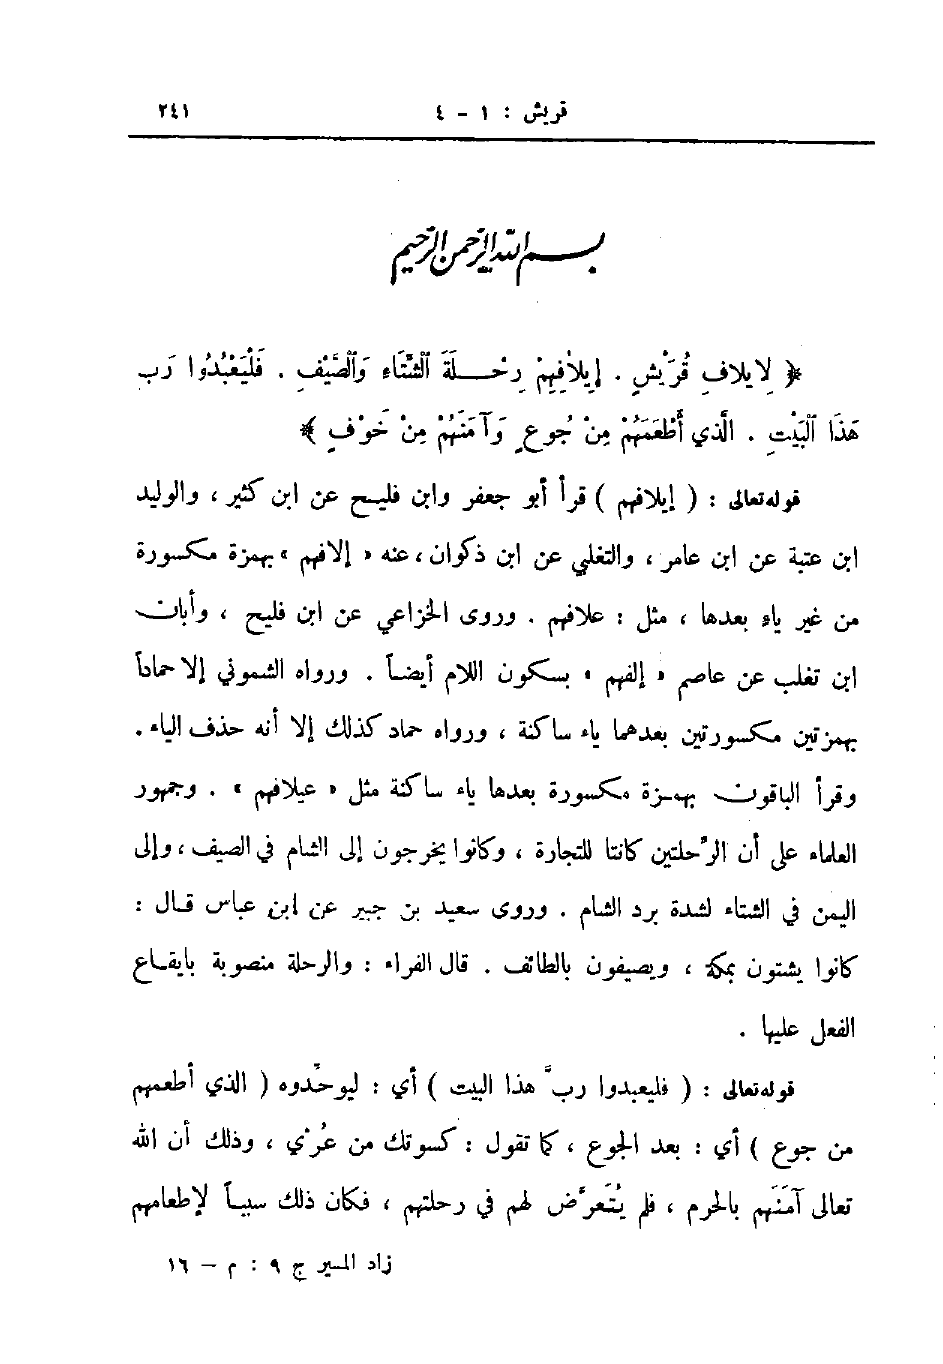 قريش : ١ – ٤ ٢٤١
بسم الله الرحمن الرحيم
﴿ لِايلافِ قُرَيْشٍ . إيلَافِهِمْ رِحْلَةَ ٱلشِّتَاءِ وَٱلصَّيْفِ . فَلْيَعْبُدُوا رَبَّ
هَذَا ٱلْبَيْتِ . الَّذي أَطْعَمَهُمْ مِنْ جُوعٍ وَآمَنَهُمْ مِنْ خَوْفٍ ﴾
قوله تعالى : ( إيلافهم ) قرأ أبو جعفر وابن فليح عن ابن كثير ، والوليد
ابن عتبة عن ابن عامر ، والتغلبي عن ابن ذكوان ، عنه « إلافهم » بهمزة مكسورة
من غير ياء بعدها ، مثل : علافهم . وروى الخزاعي عن ابن فليح ، وأبان
ابن تغلب عن عاصم « إلفهم » بسكون اللام أيضاً . ورواه الشموني إلا حماداً
بهمزتين مكسورتين بعدهما ياء ساكنة ، ورواه حماد كذلك إلا أنه حذف الياء .
وقرأ الباقون بهمزة مكسورة بعدها ياء ساكنة مثل « عيلافهم » . وجمهور
العلماء على أن الرِّحلتين كانتا للتجارة ، وكانوا يخرجون إلى الشام في الصيف ، وإلى
اليمن في الشتاء لشدة برد الشام . وروى سعيد بن جبير عن ابن عباس قال :
كانوا يشتون بمكة ، ويصيفون بالطائف . قال الفراء : والرحلة منصوبة بايقاع
الفعل عليها .
قوله تعالى : ( فليعبدوا ربَّ هذا البيت ) أي : ليوحِّدوه ( الذي أطعمهم
من جوع ) أي : بعد الجوع ، كما تقول : كسوتك من عُرْي ، وذلك أن الله
تعالى آمَنَهم بالحرم ، فلم يُتَعرَّض لهم في رحلتهم ، فكان ذلك سبباً لإطعامهم
زاد المسير ج ٩ : م – ١٦